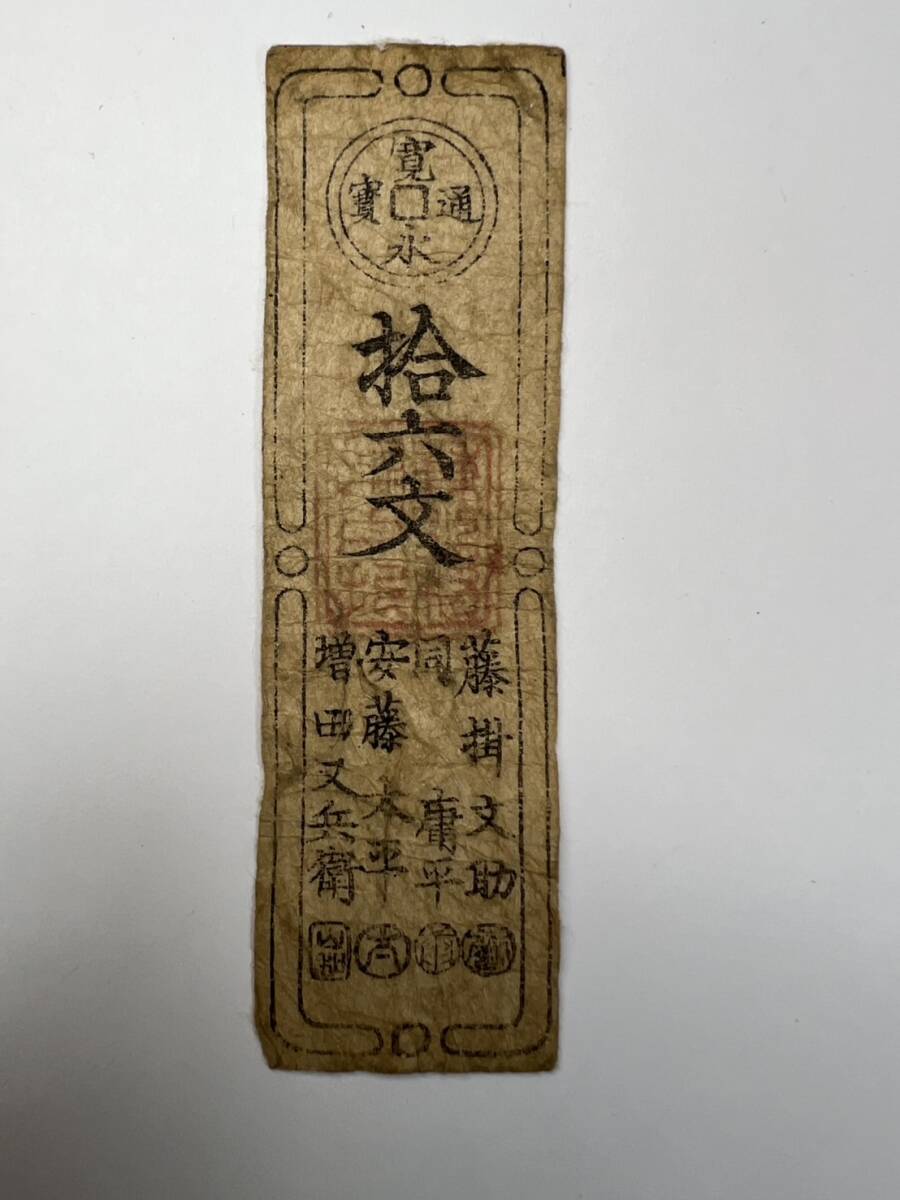 寛永通寳
拾六文
藤掛文助
同庸平
安藤太平
増田又兵衛